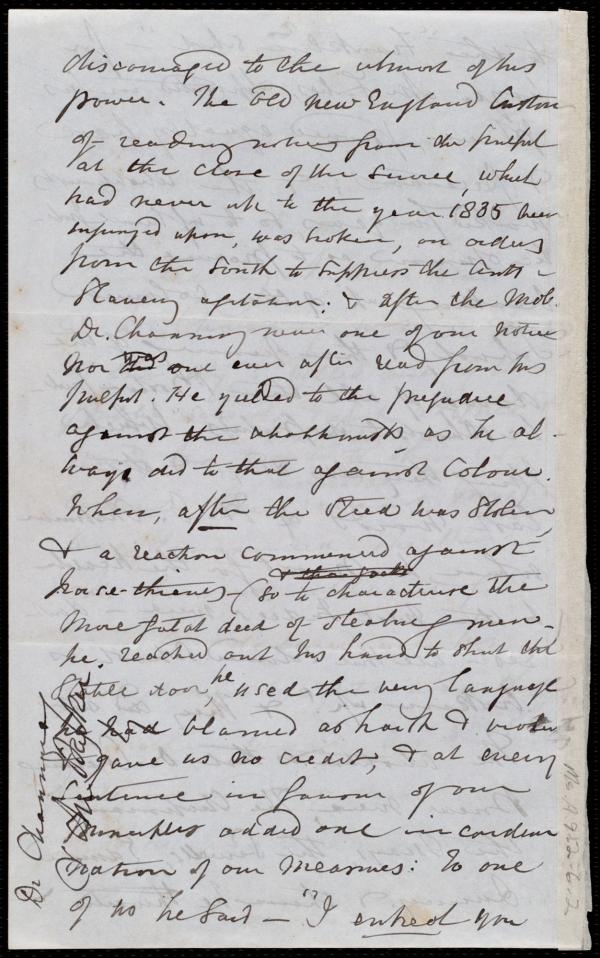 discouraged to the utmost of his
power. The Old New England Custom
of reading notices from the pulpit
at the close of the service, which
had never up to the year 1835 been
infringed upon, was broken, on orders
from the South to suppress the Anti-
Slavery agitation; & after the Mob.
Dr. Channing never one of our notices
nor was one ever after read from his
pulpit. He yielded to the prejudice
against the abolitionists as he al-
ways did to that against Colour.
When, after the Steed was Stolen,
& a reaction commenced against
horse-thieves - (so to characterise the
more fatal deed of stealing men -
he reached out his hand to shut the
Stable door, he used the very language
he had blamed as harsh & violent
gave us no credit, & at every
Sentence in favour of our
principles added one in condem
nation of our measures: To one
of us he said - "I entreat you
Dr Channing
Ms. A.9.2.6.2